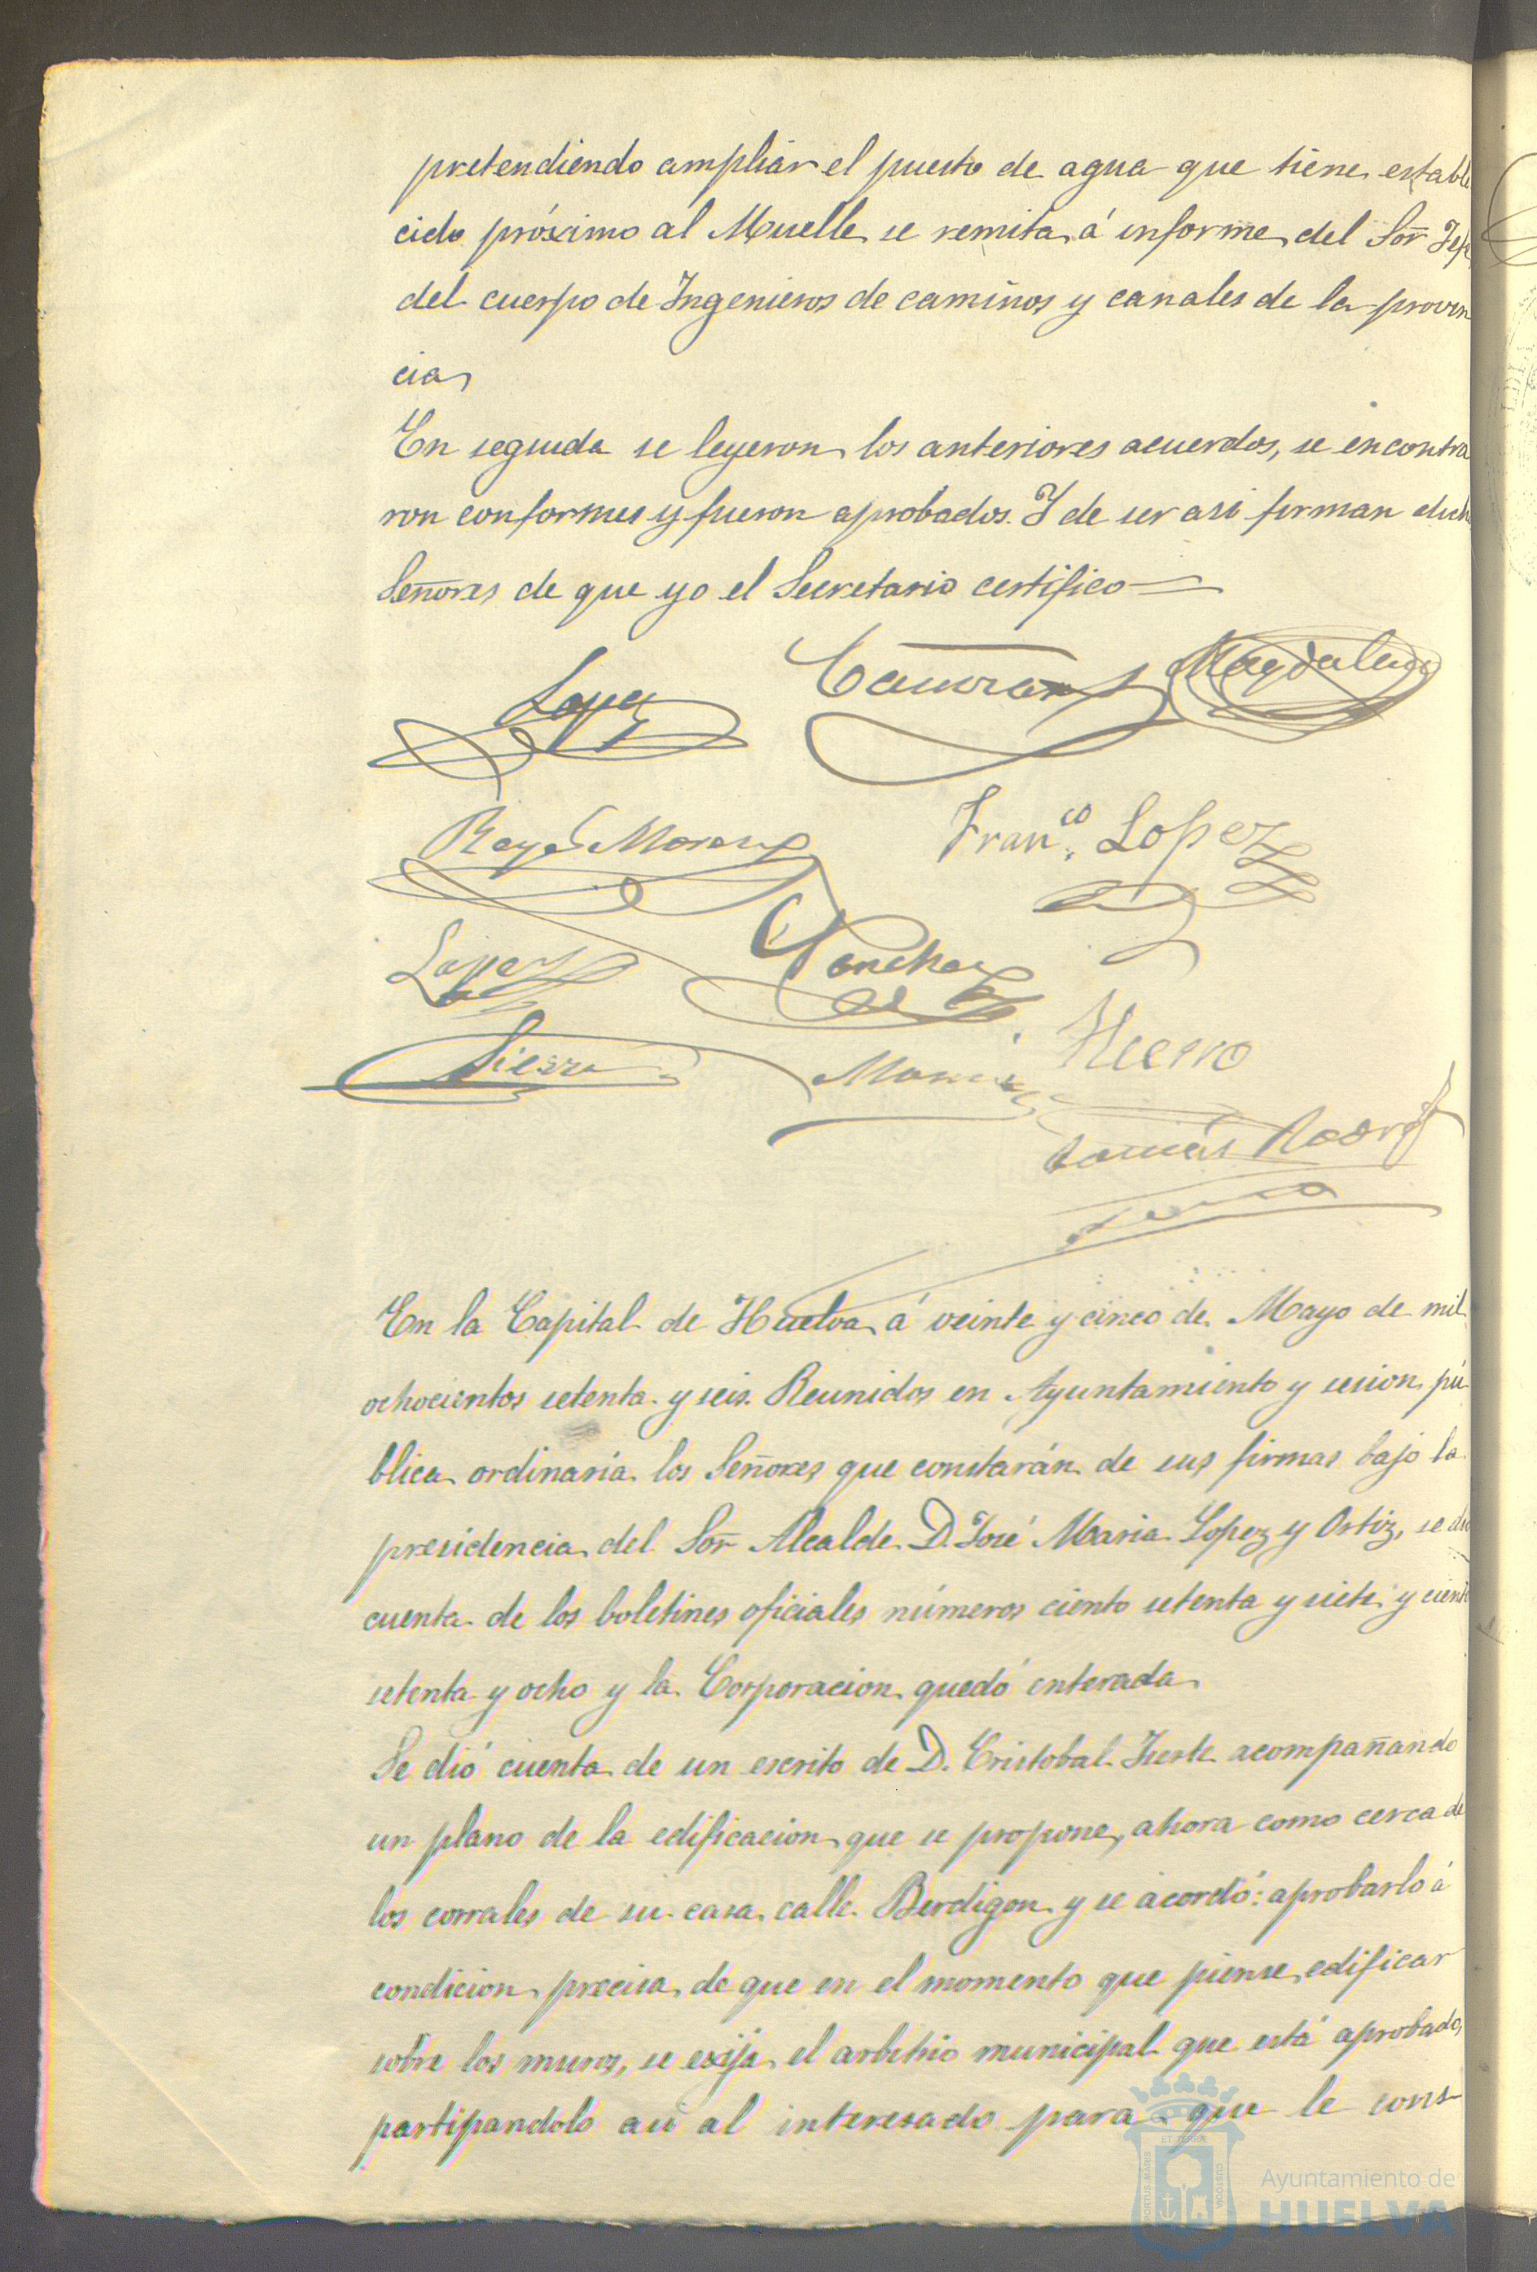 pretendiendo ampliar el puesto de agua que tiene estable
cido próximo al Muelle se remita á informe del Sor Jefe
del cuerpo de Ingenieros de caminos y canales de la provin
cia
En seguida se leyeron los anteriores acuerdos, se encontra
ron conformes y fueron aprobados. Y de ser asi firman dich
Señores de que yo el Secretario certifico
Lopez
Magdalena
Moreno
Franco Lopez
Lopez
Sanchez
Sierra
Tomás Rodrig
En la Capital de Huelva á veinte y cinco de Mayo de mil
ochocientos setenta y seis. Reunidos en Ayuntamiento y sesion pú
blica ordinaria los Señores que constarán de sus firmas bajo la
presidencia del Sor Alcalde D. José Maria Lopez y Ortiz, se dió
cuenta de los boletines oficiales números ciento setenta y siete y ciento
setenta y ocho y la Corporacion quedó enterada
Se dió cuenta de un escrito de D. Cristobal acompañando
un plano de la edificacion que se propone, ahora como cerca de
los corrales de su casa calle Berdigon y se acordó: aprobarlo á
condicion precisa de que en el momento que piense edificar
sobre los muros, se exija el arbitrio municipal que está aprobado,
partipandolo asi al interesado para que le cons-
PORTUS MARIS
ET TERRAE
CUSTODIA
Ayuntamiento de
HUELVA